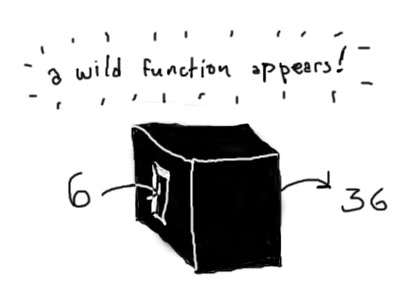 a wild function appears!
6 36